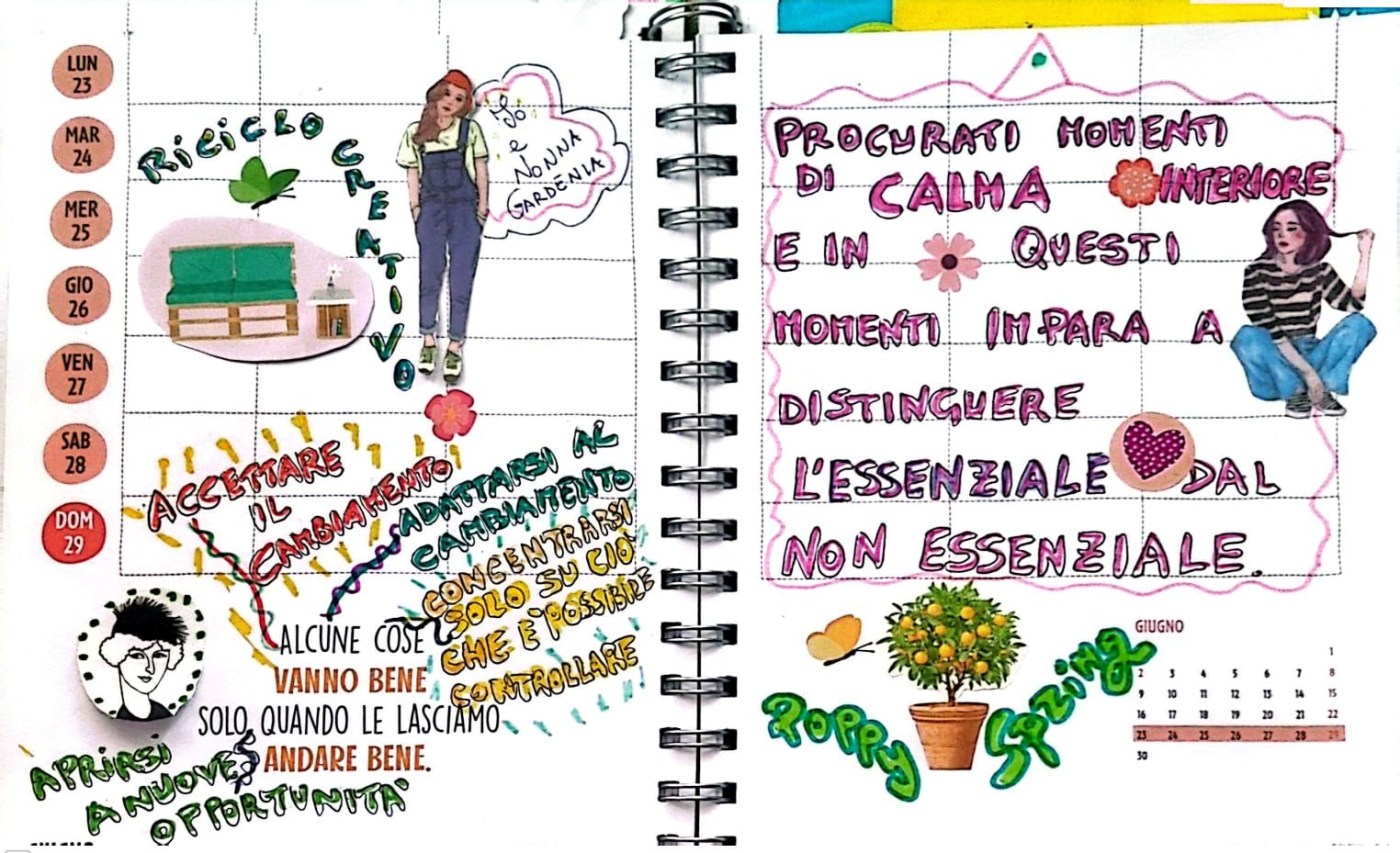 LUN
23
MAR
24
MER
25
GIO
26
VEN
27
SAB
28
DOM
29
RiCiCLO
CREATiVO
e
NONNA
GARDENIA
ACCETTARE
IL
CAMBIAMENTO
ADATTARSI AL
CAMBIAMENTO
CONCENTRARSI
SOLO SU CIÒ
CHE È POSSIBILE
CONTROLLARE
ALCUNE COSE
VANNO BENE
SOLO QUANDO LE LASCIAMO
ANDARE BENE.
APRIRSI
A NUOVE
OPPORTUNITÀ
PROCURATI MOMENTI
DI CALMA INTERIORE
E IN QUESTI
MOMENTI IMPARA A
DISTINGUERE
L'ESSENZIALE DAL
NON ESSENZIALE.
Poppy Spring
GIUGNO
1
2 3 4 5 6 7 8
9 10 11 12 13 14 15
16 17 18 19 20 21 22
23 24 25 26 27 28 29
30